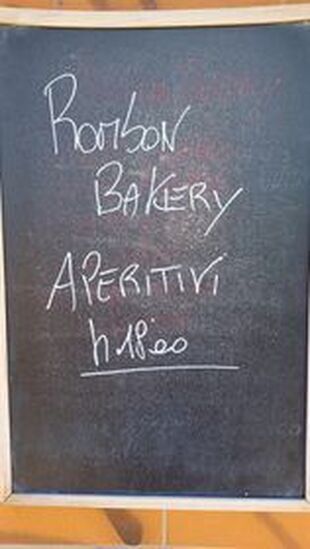 ROMBON
BAKERY
APERITIVI
h 18:00